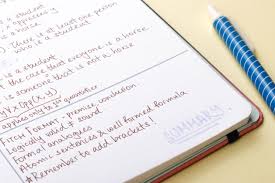 is a student
There is at least one person
who is a student
the case that everyone is a horse
is someone that is not a horse
is a student
applies only to quantifier
FITCH FORMAT - premise conclusion
Logically valid & sound
Formal analogues
Atomic sentences & well formed formula
*Remember to add brackets!
SUMMARY